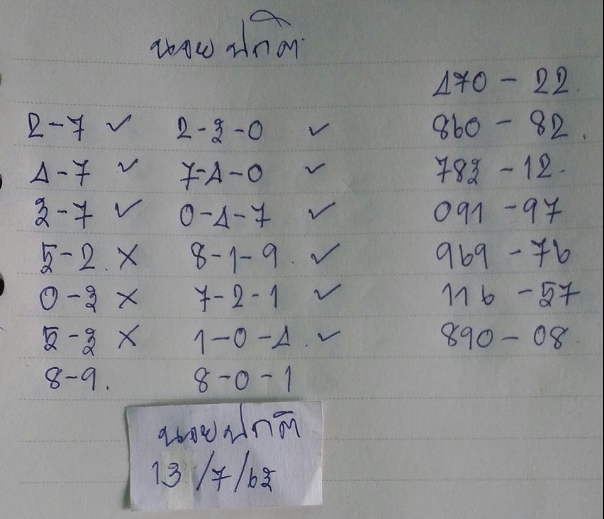 นอย ปกติ
470 - 22
2-7 ✓ 2-3-0 ✓ 860 - 82.
4-7 ✓ 7-4-0 ✓ 783 - 12.
3-7 ✓ 0-4-7 ✓ 091 - 97
5-2. X 8-1-9. ✓ 969 - 76
0-3 X 7-2-1 ✓ 116 - 57
5-3 X 1-0-4. ✓ 890 - 08.
8-9. 8-0-1
นอยปกติ
13/7/63